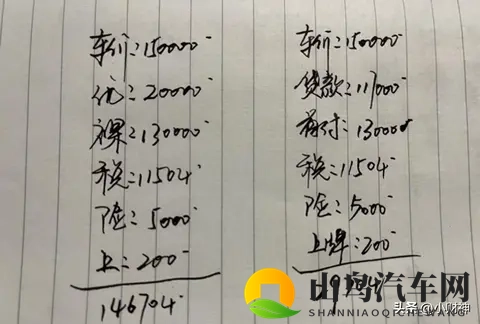 车价:150000
优:20000
裸:130000
税:11504
险:5000
上:200
146704
车价:150000
贷款:117000
首付:13000
税:11504
险:5000
上牌:200
山鸟汽车网
SHANNIAOQICHEWANG
头条